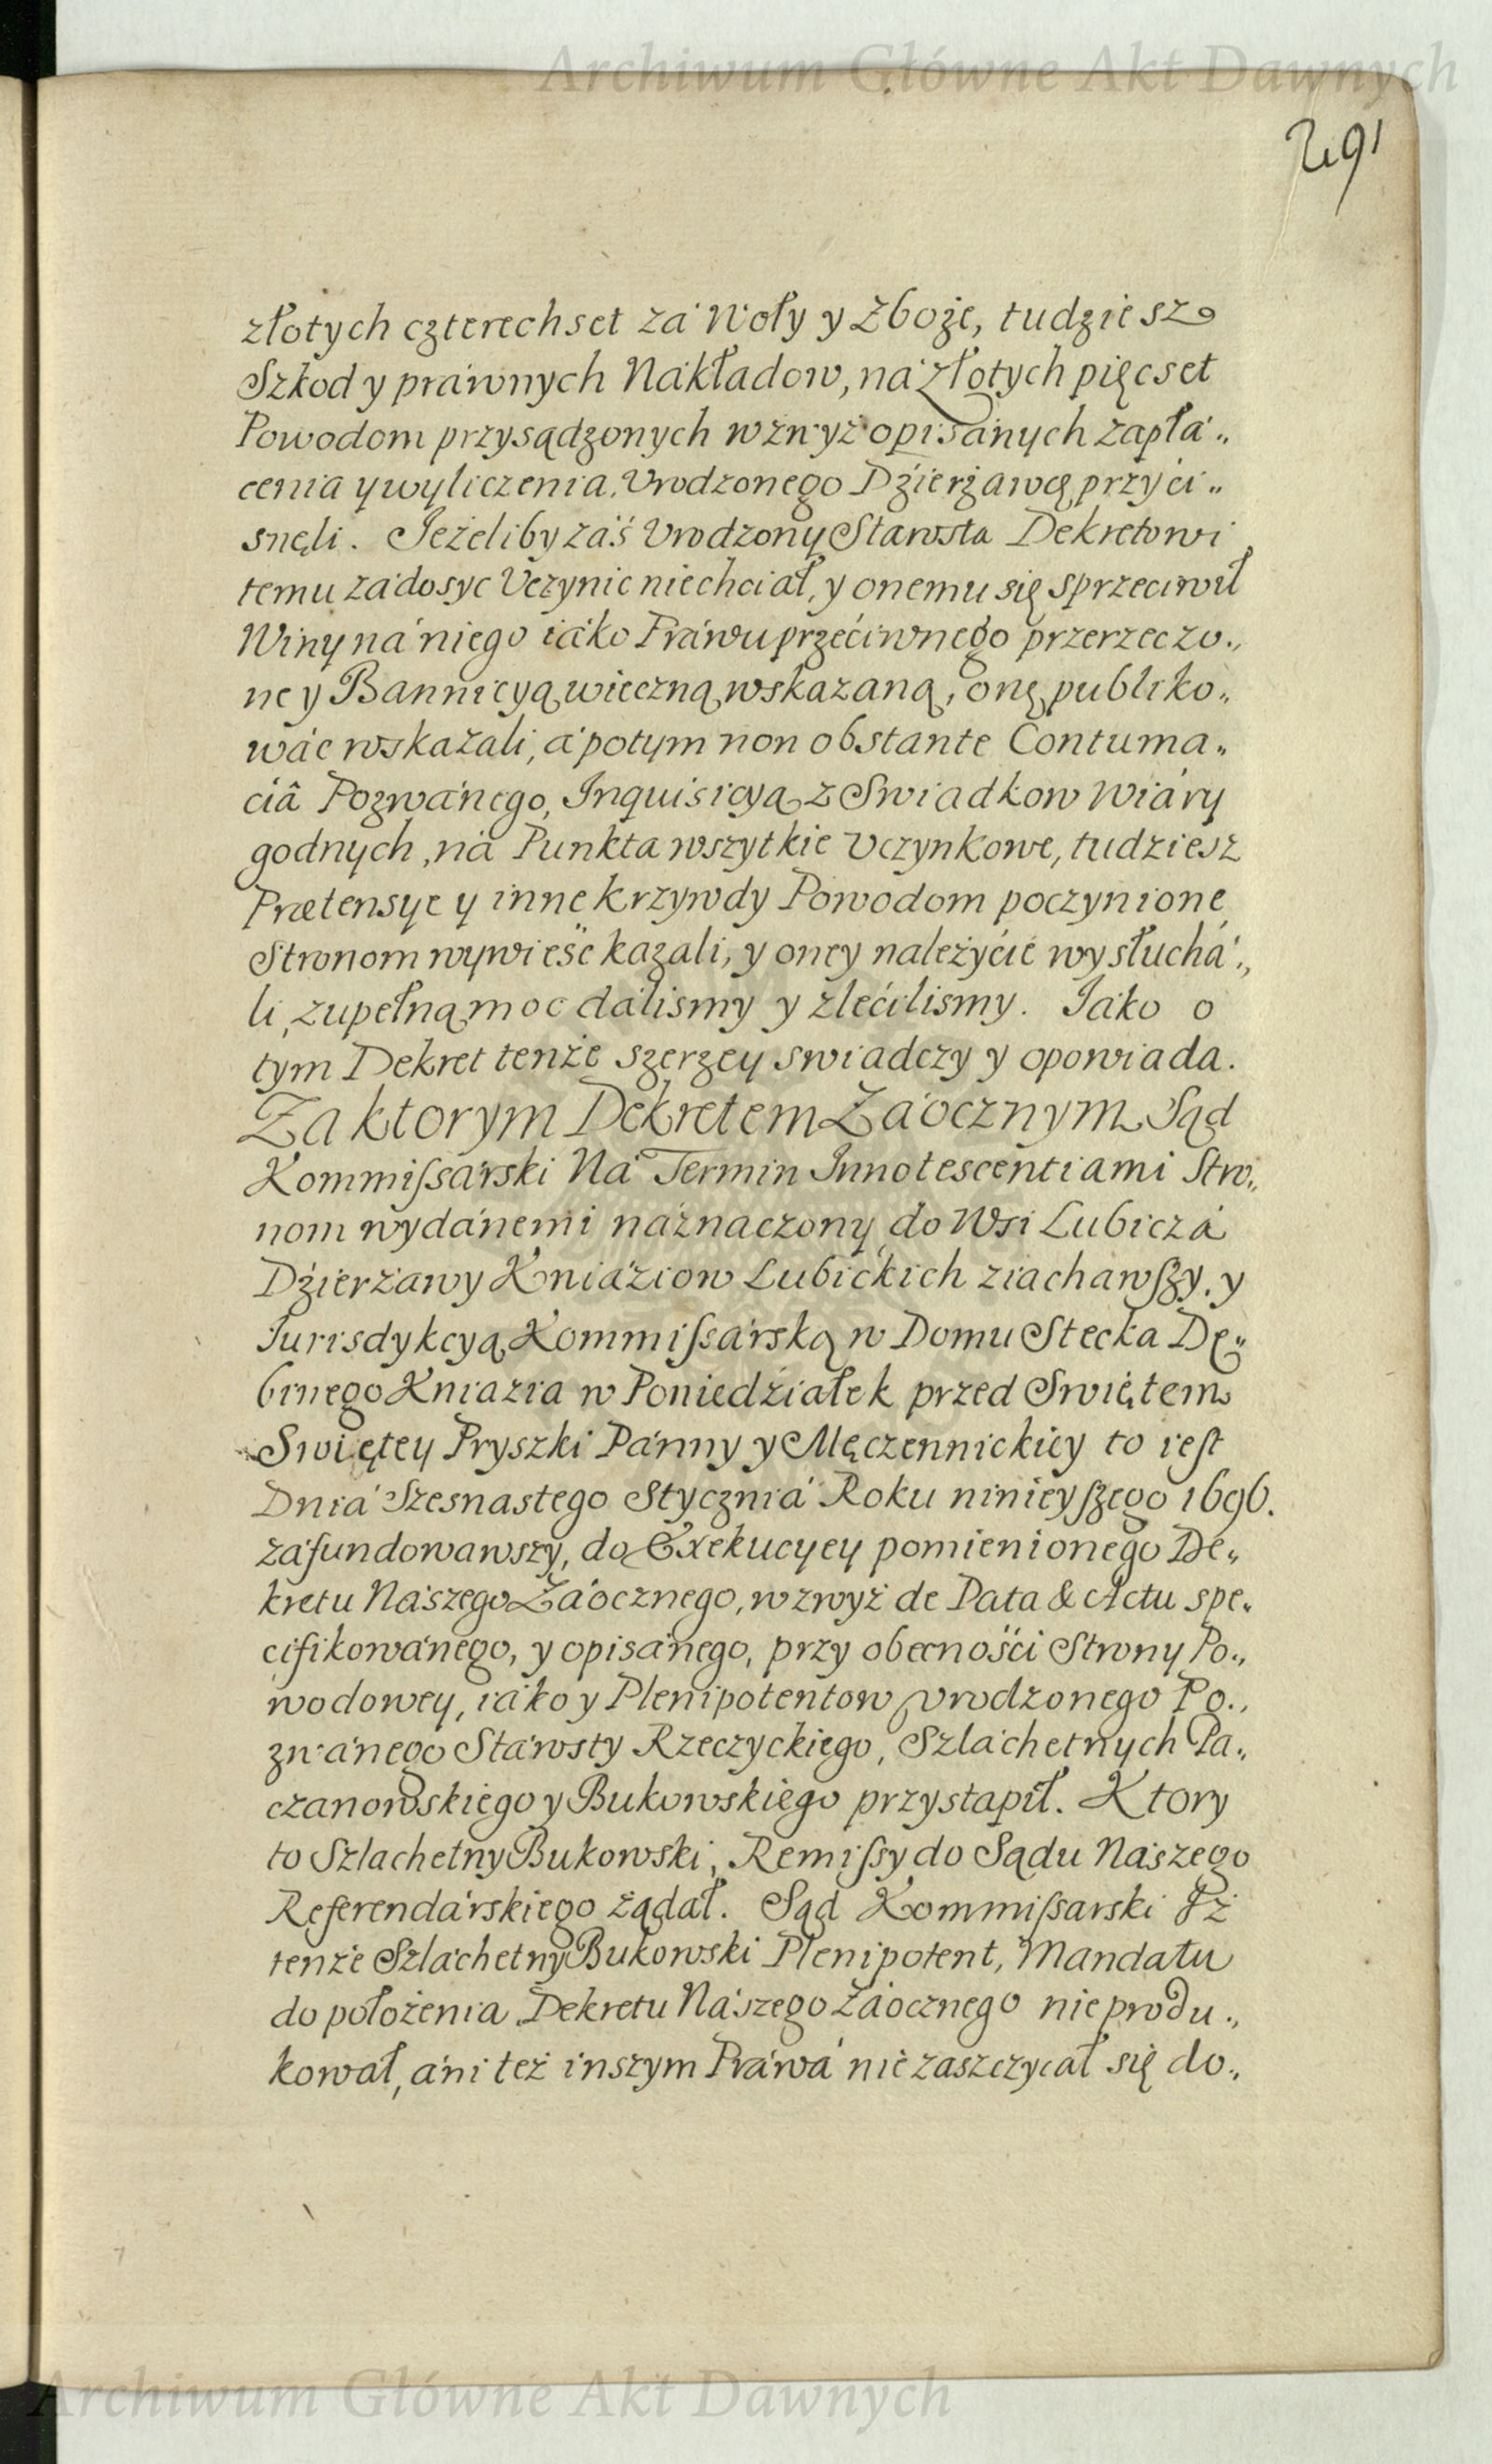 Archiwum Główne Akt Dawnych
291
złotych czterechset zá Woły y Zboże, tudziesz
Szkod y práwnych Nákładow, ná złotych pięcset
Powodom przysądzonych wzwyż opisánych zápłá„
cenia y wyliczenia, Vrodzonego Dźierżawcę przyci„
snęli. Jeżeliby záś Vrodzony Starosta Dekretowi
temu zádosyc Vczynic niechciał, y onemu się sprzeciwił
Winy ná niego iáko Práwu przećiwnego przerzeczo„
ne y Bannicyą wieczną wskazaną, onę publiko„
wác wskazali, á potym non obstante Contuma„
ciâ Pozwánego, Inquisicyą z Swiadkow Wiáry
godnych, ná Punkta wszytkie Vczynkowe, tudziesz
Prætensye y inne krzywdy Powodom poczynione
Stronom wywieść kazali, y oney należyćie wysłuchá„
li, zupełną moc dálismy y zlećilismy. Iáko o
tym Dekret tenże szerzey swiadczy y opowiada.
Za ktorym Dekretem Záocznym Sąd
Kommiſsárski Ná Termin Innotescentiami Stro„
nom wydánemi náznaczony do Wsi Lubiczá
Dźierżawy Kniáziow Lubickich ziachawſzy, y
Iurisdykcyą Kommiſsárską w Domu Stecka Dę„
binego Kniazia w Poniedźiałek przed Swiętem
Swiętey Pryszki Pánny y Męczennickiey to ieſt
Dniá Szesnastego Styczniá Roku ninieyſzego 1696.
záfundowawszy, do Exekucyey pomienionego De„
kretu Nászego Záocznego, wzwyż de Data & Actu spe„
cifikowánego, y opisánego, przy obecności Strony Po„
wodowey, iáko y Plenipotentow Vrodzonego Po„
zwánego Stárosty Rzeczyckiego, Szláchetnych Pa„
czanowskiego y Bukowskiego przystapił. Ktory
to Szlachetny Bukowski, Remiſsy do Sądu Nászego
Referendárskiego żądał. Sąd Kommiſsarski Iż
tenże Szláchetny Bukowski Plenipotent, Mandatu
do położenia Dekretu Nászego Záocznego nie produ„
kował, áni też inszym Práwá nie zaszczycał się do„
Archiwum Główne Akt Dawnych